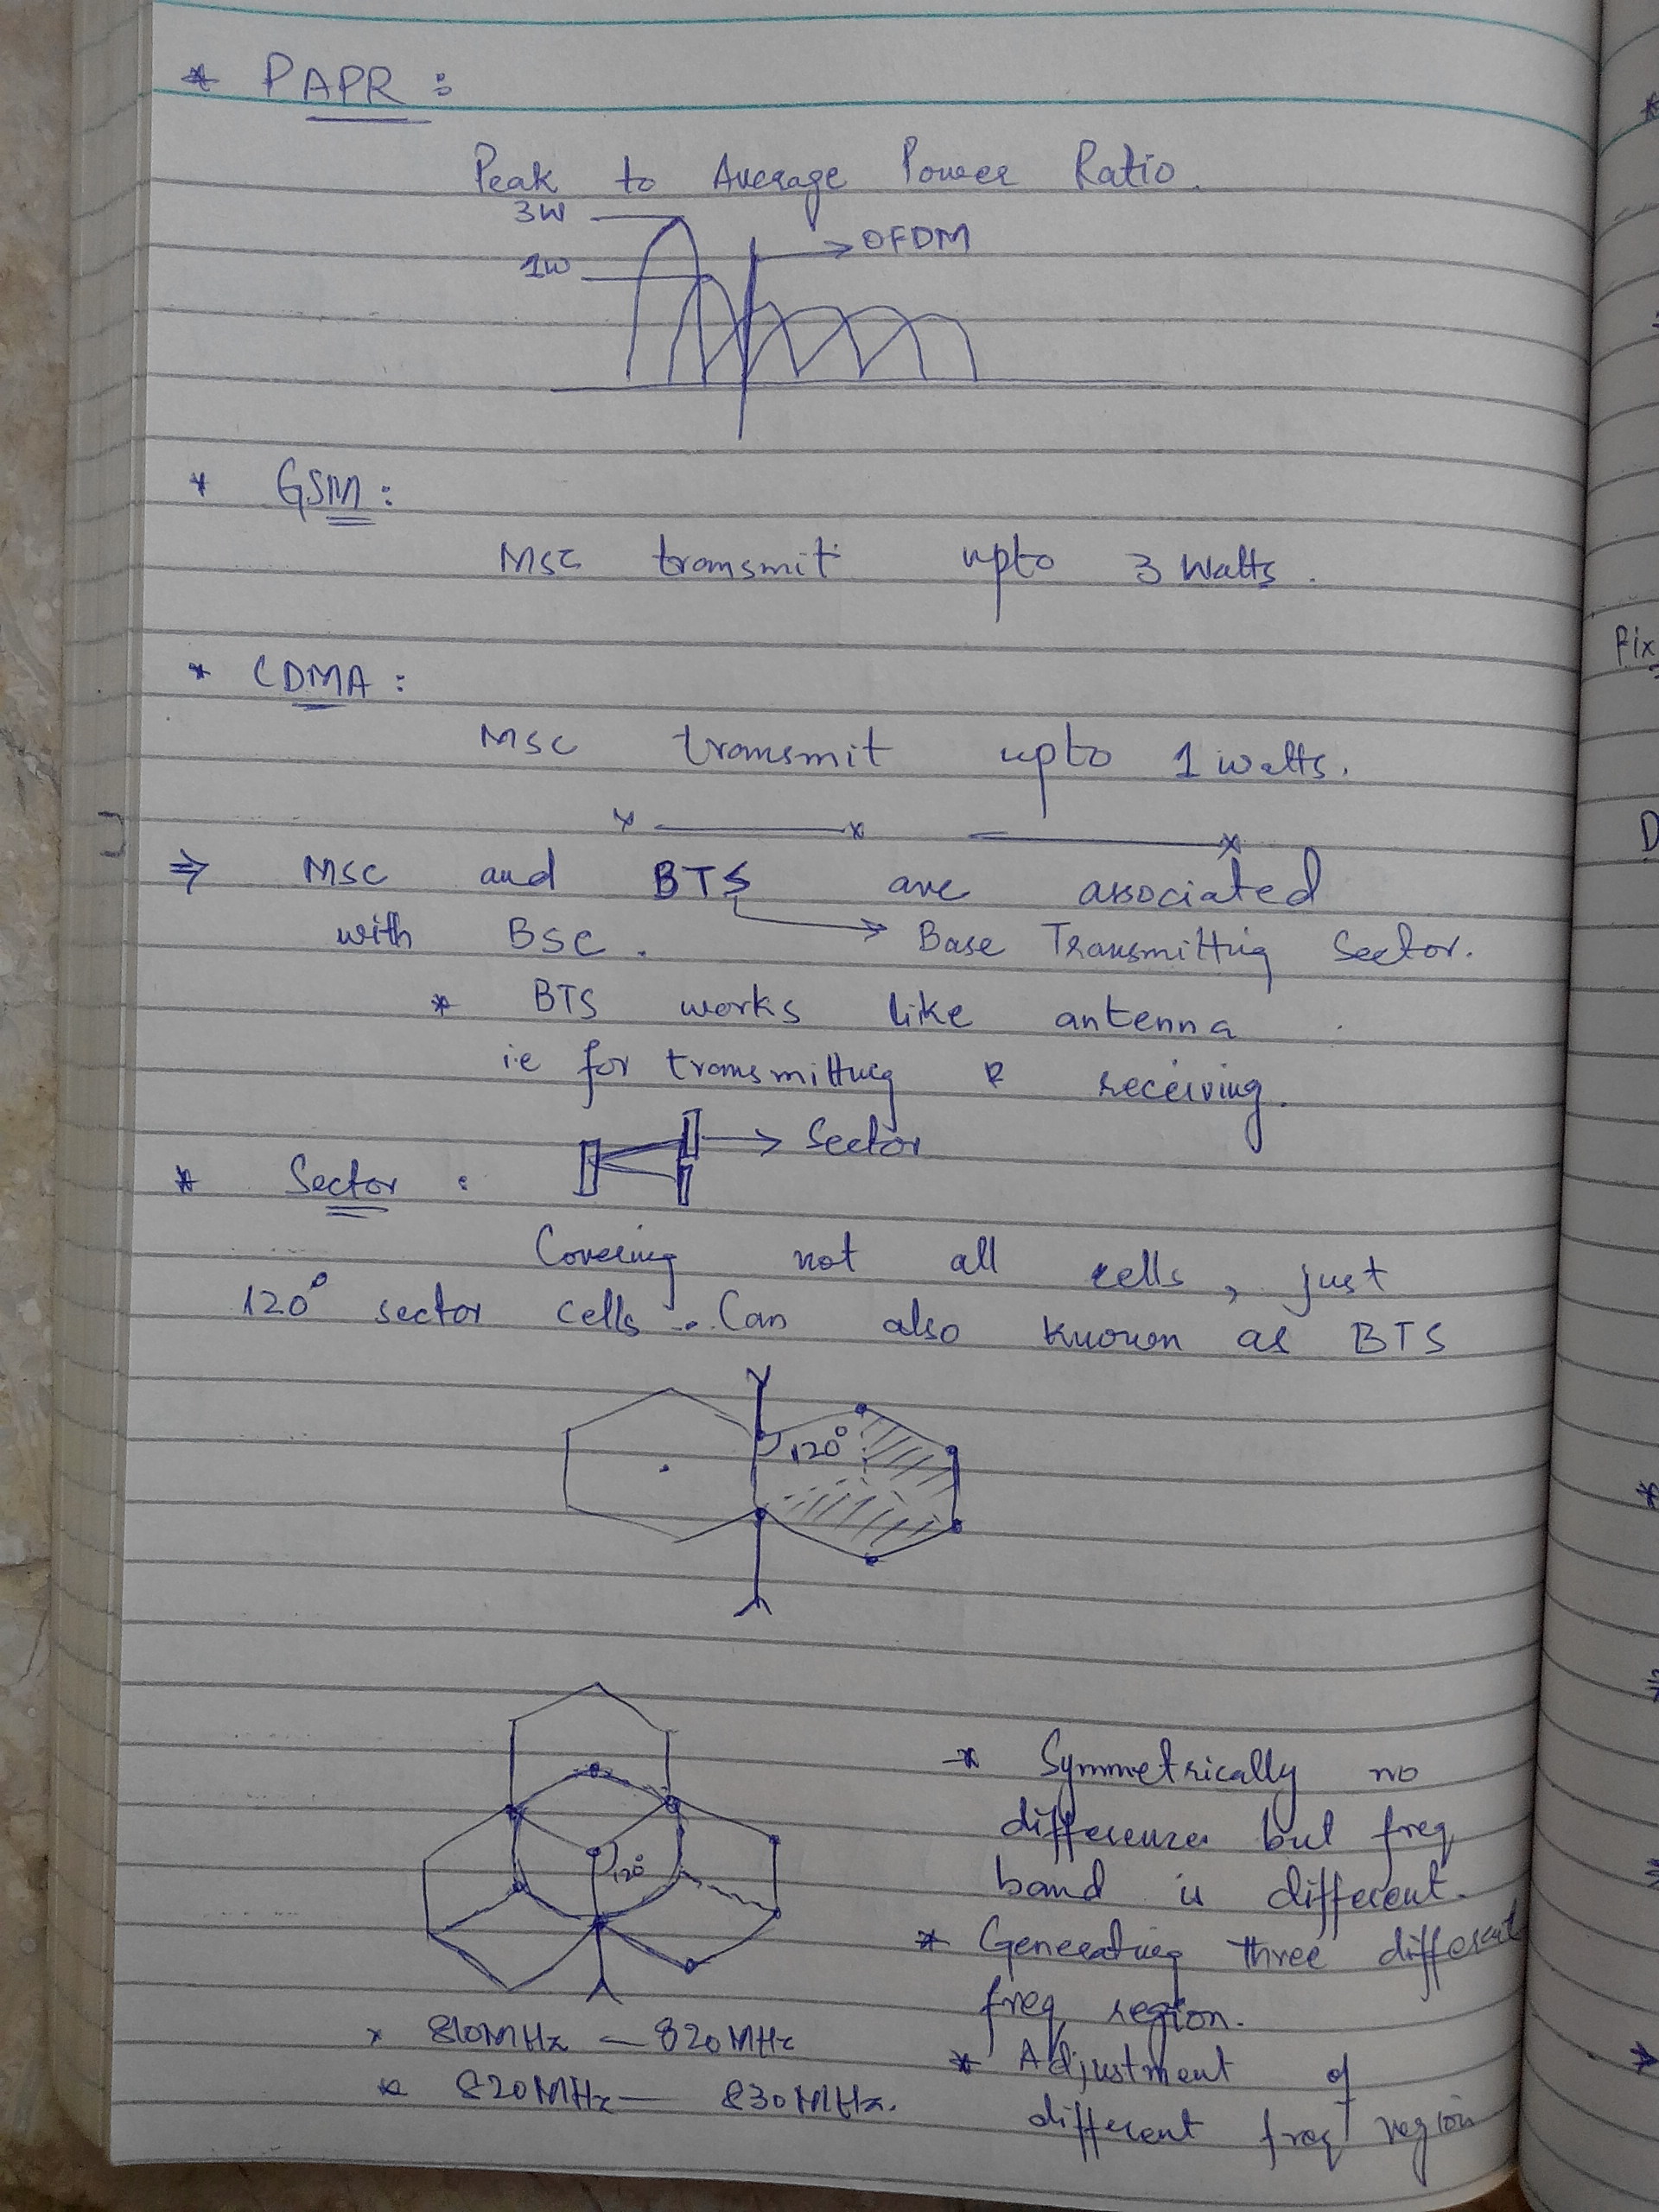 * PAPR :
Peak to Average Power Ratio.
3W
OFDM
1W
* GSM :
MSC transmit upto 3 Watts.
* CDMA :
MSC transmit upto 1 watts.
x — x — x
⇒ MSC and BTS are associated
with BSC. → Base Transmitting Sector.
* BTS works like antenna
i.e for transmitting & receiving.
→ Sector
* Sector :
Covering not all cells, just
120° sector cells. Can also known as BTS
120°
* Symmetrically no
differences but freq
band is different.
120°
* Generating three different
freq region.
* 810MHz — 820MHz
* Adjustment of
* 820MHz — 830MHz.
different freq region
Fix
D